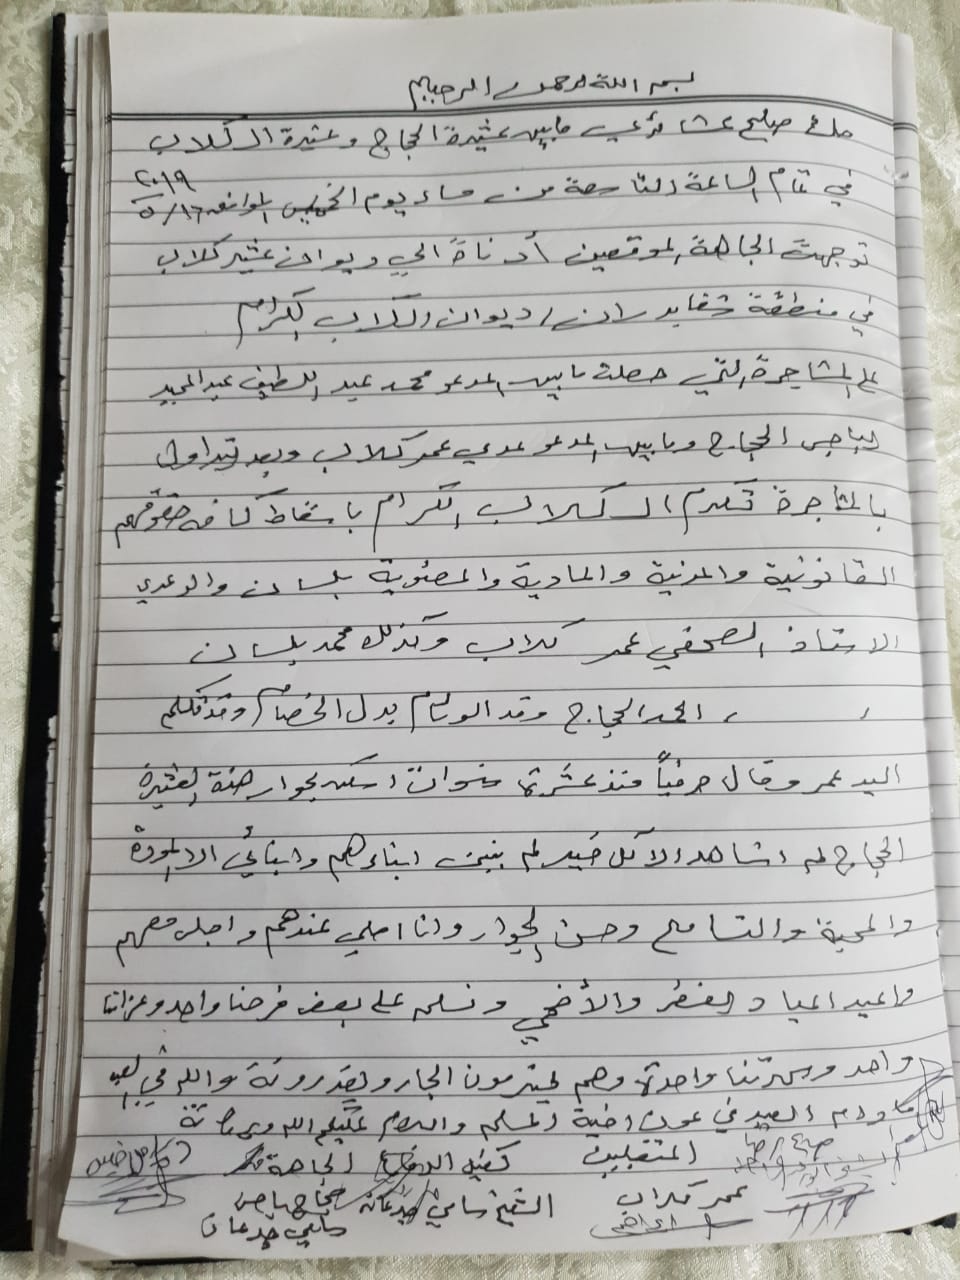 بسم الله الرحمن الرحيم
صك صلح عشائري ما بين عشيرة الحجاج وعشيرة الكلاب
في تمام الساعة التاسعة من مساء يوم الخميس الموافق ٥/١٦ ٢٠١٩
توجهت الجاهة الموقعين أدناه الى ديوان عشيرة كلاب
في منطقة شفا بدران / ديوان الكلاب الكرام
على المشاجرة التي حصلت ما بين المدعو محمد عبد اللطيف عبد المجيد
الحجاج وما بين المدعو عدي عمر كلاب وبعد تداول
بالمشاجرة تكرم الكلاب الكرام باسقاط كافة حقوقهم
القانونية والمدنية والمادية والمعنوية بلسان والد عدي
الاستاذ الصحفي عمر كلاب وكذلك محمد بلسان
، ، الحجاج وقد الوئام بدل الخصام وقد تكلم
السيد عمر وقال حرفياً منذ عشرة سنوات اسكن بجوار هذه العشيرة
الحجاج لم اشاهد الا كل خير لم بين ابناءهم وابنائي الا المودة
والمحبة والتسامح وحسن الجوار وانا اصلي عندهم واجلس معهم
واعيد اعياد الفطر والأضحى ونسلم على بعض فرحنا واحد وعزائنا
واحد وسهرتنا واحدة وهم يحترمون الجار ويقدرونه والله في
ما دام العبد في عون اخيه المسلم والسلام عليكم ورحمة الله
المتقبلين كفيل الدفا الجاهة
عمر كلاب الشيخ سامي جدعان
سامي جدعان